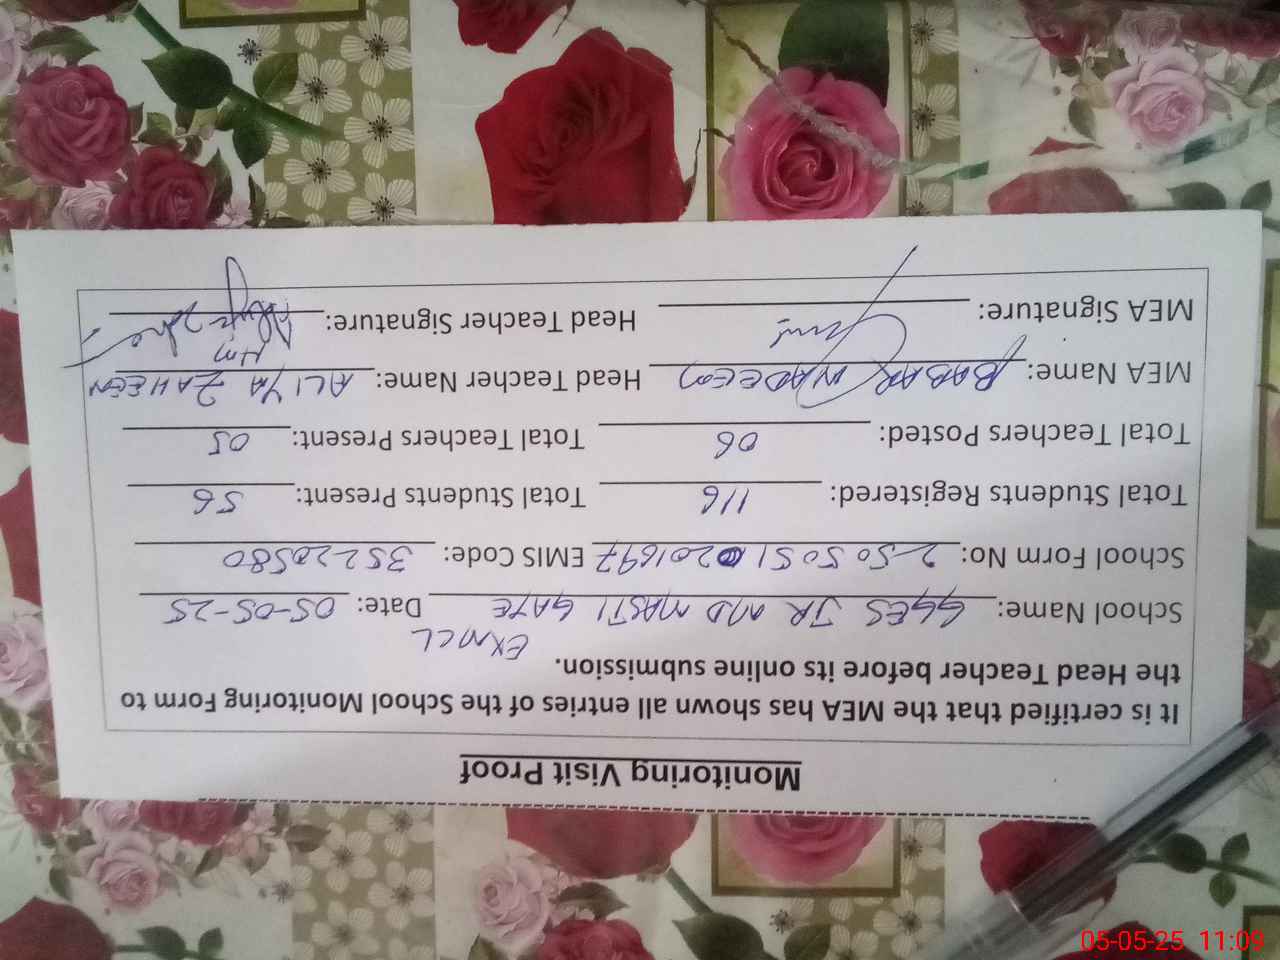 Monitoring Visit Proof
It is certified that the MEA has shown all entries of the School Monitoring Form to
the Head Teacher before its online submission.
EXMCL
School Name: GGES JR MD MASTI GATE Date: 05-05-25
School Form No: 2505051 0201697 EMIS Code: 35220580
Total Students Registered: 116 Total Students Present: 56
Total Teachers Posted: 06 Total Teachers Present: 05
MEA Name: BABAR NADEEM Head Teacher Name: ALIYA ZAHEEN
HM
MEA Signature: Head Teacher Signature:
05-05-25 11:09